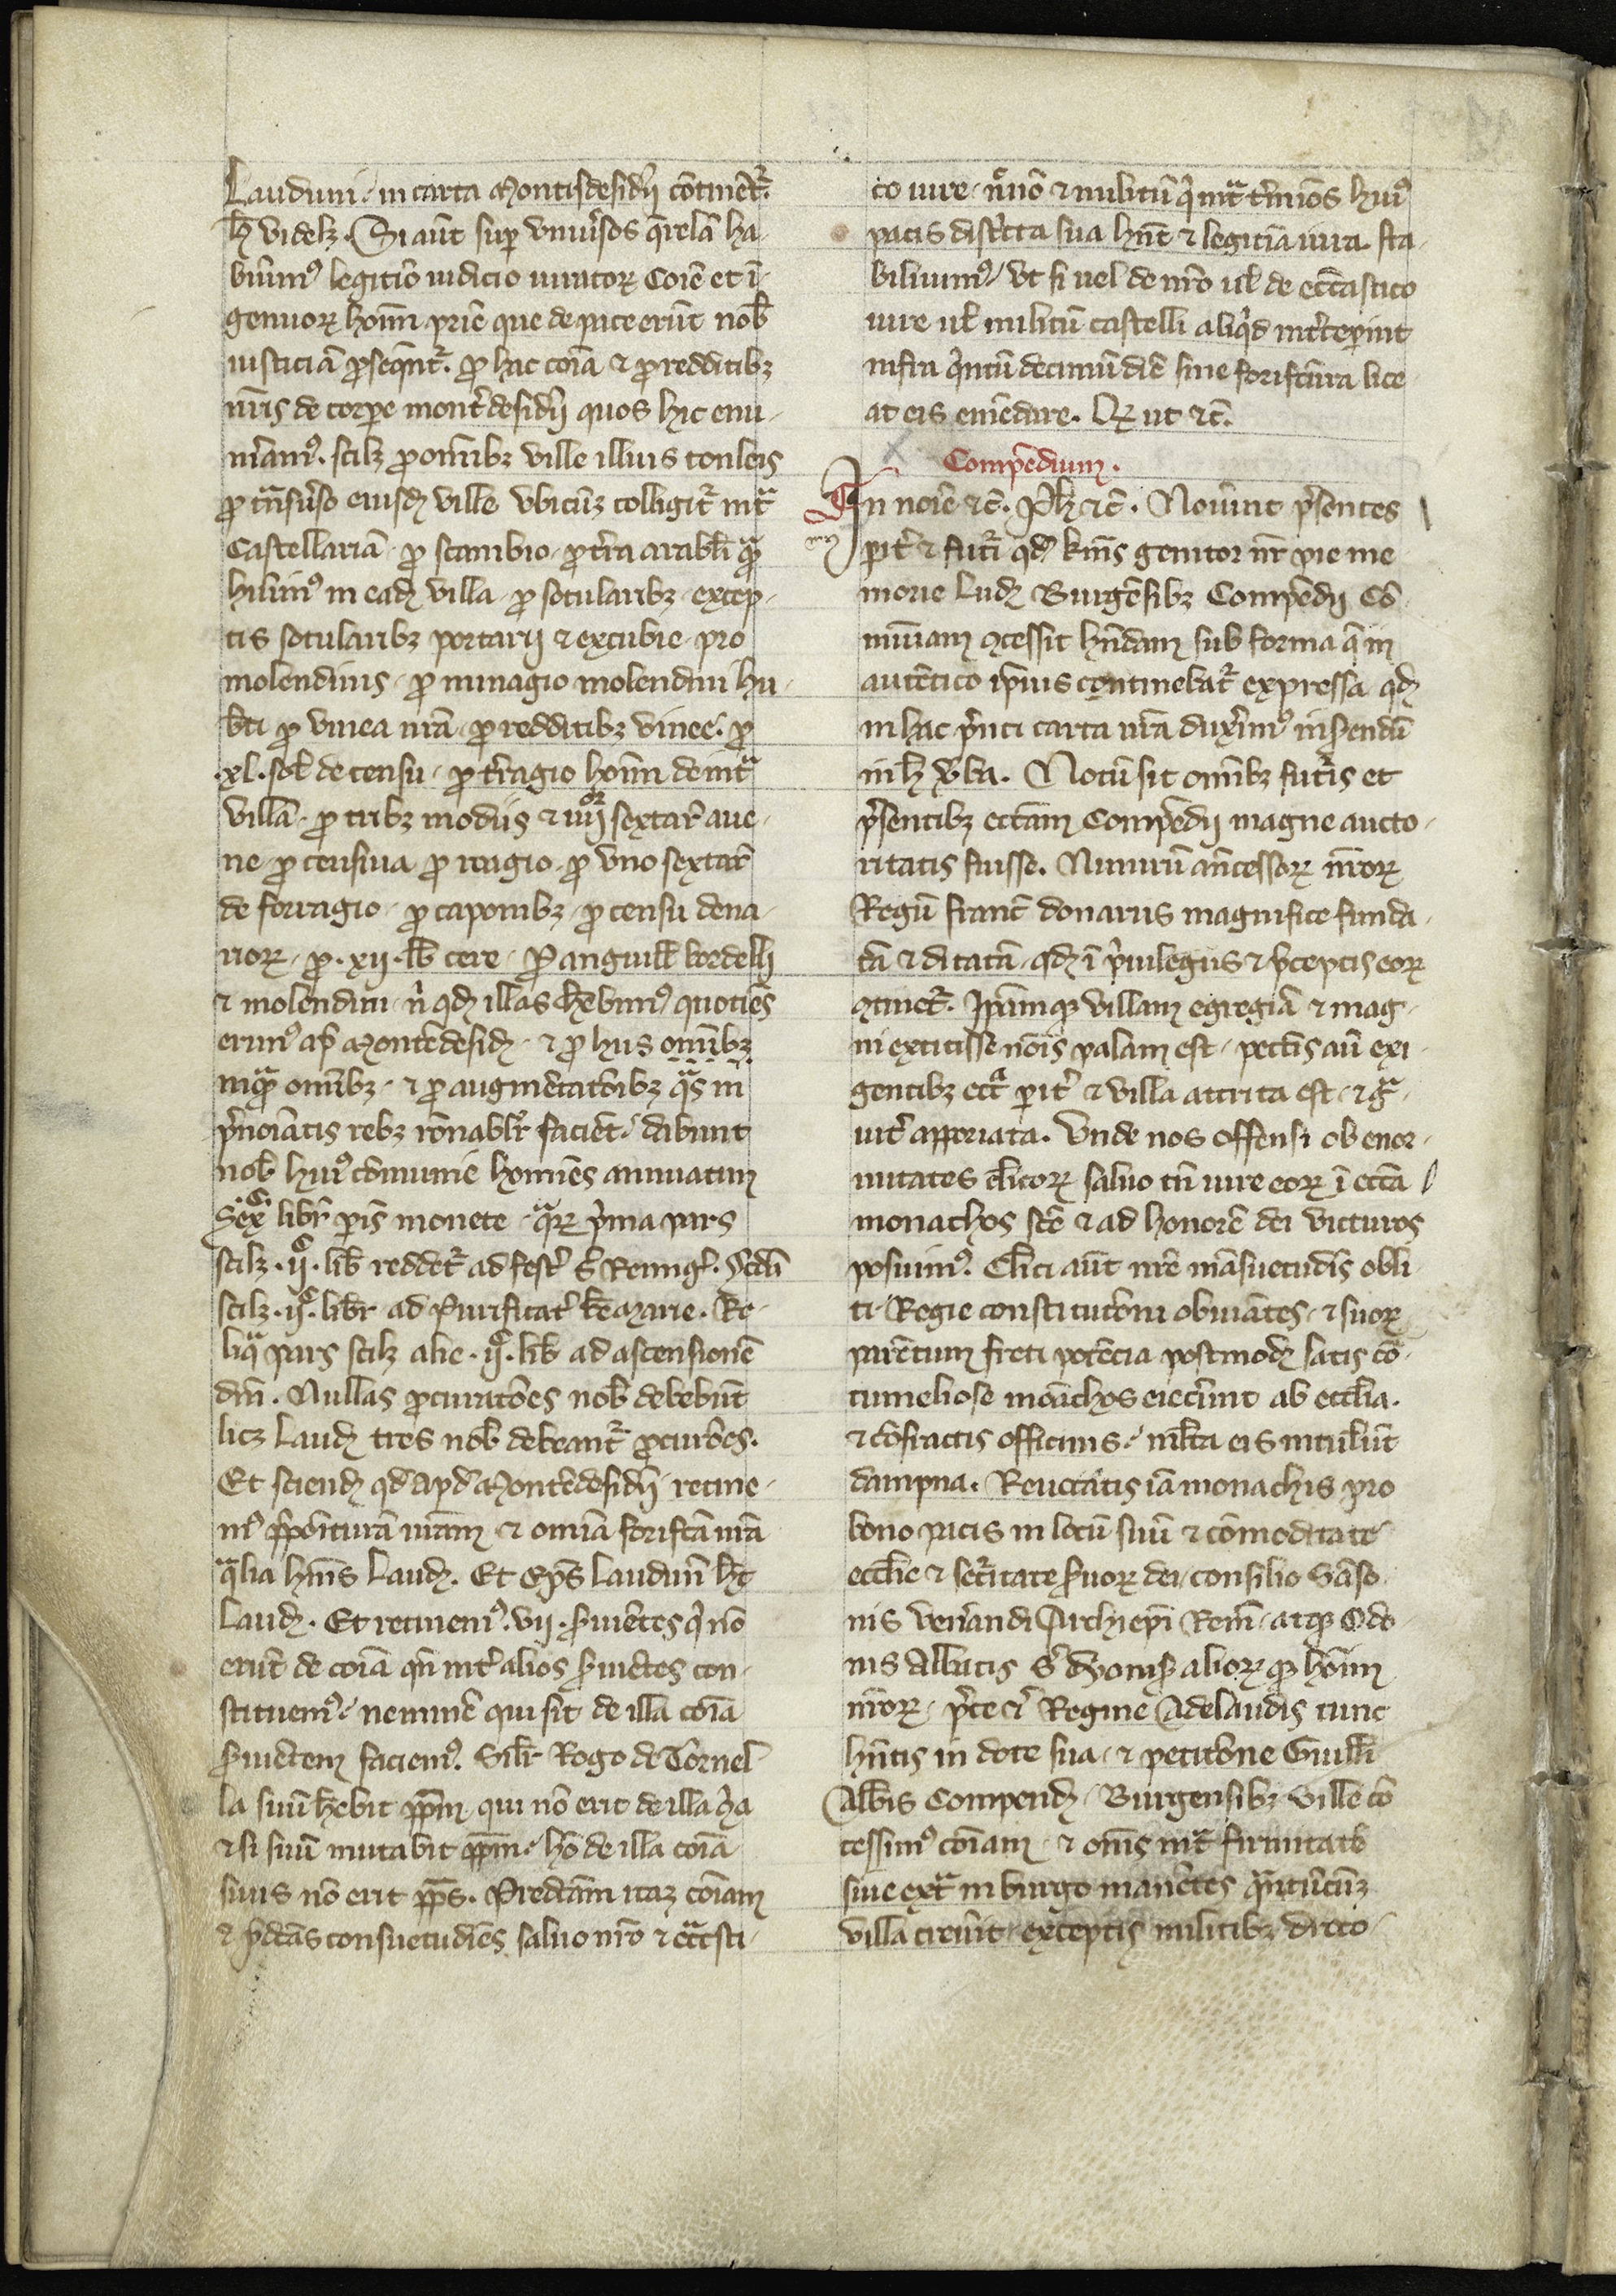 Lauduni. in carta Montisdesidĳ cōtinet᷑.
h̄ videlꝫ. Si aūt suꝑ vniu̾sos q̾relā ha
buim᷒ legitīo iudicio iuratoꝝ Coīe et ī
genuoꝝ hoīm prīe que de pace erūt nob̄
iusticiā ꝓseqnt᷑. ꝓ hac coīa ⁊ ꝓ redditibꝫ
nr̄is de corpe mont̾desidĳ quos hic enu
m̾am᷒. scilꝫ ꝓ om̄ibꝫ ville illius tonleis
ꝓ tͣnsu̾so eiusdꝫ ville vbicūꝫ colligit᷑ int̾ͣ
Castellariā. ꝓ scambio. ꝓ tr̄a arabl̄i qͣm
hĺuim᷒ in eadꝫ villa. ꝓ sotularibꝫ. excep
tis sotularibꝫ portarĳ ⁊ excubie. pro
molendinis. ꝓ minagio molendini hu
b̄ti ꝓ vinea nr̄a. ꝓ redditibꝫ vinee. ꝓ
.xl. sol̄ de censu. ꝓ tr̄agio hoīm de int̾ͣ
villā. ꝓ tribꝫ modiis ⁊ iiĳor sextar̄ aue
ne. ꝓ censiua ꝓ reagio. ꝓ vno sextar̄
de forragio. ꝓ caponibꝫ. ꝓ censu dena
rioꝝ. ꝓ .xĳ. lb̄ cere. ꝓ anguill̄ bordelli
⁊ molendini. n̄ qdꝫ illas hēbim᷒ quociēs
erim᷒ ap̄ Montēdesidꝫ. ⁊ ꝓ hiis om̄ibꝫ
inqͣm om̄ibꝫ. ⁊ ꝓ augmētatōibꝫ qͣs in
p̄noīatis rebꝫ rōnabl̄r faciēt. dabunt
nob̄ hui᷒ cōmunie homines annuatim
Sexc libr̄ par̄ monete. qͣꝝ p̾ma pars
scilꝫ .ĳc. lib̄ reddet᷑ ad fest̾ S̄ Remig̾. Scd̄a
scilꝫ .ĳc. libr̄ ad Purificat̾ b̄e Marie. Re
liqͣ pars scilꝫ alie .ĳc. lib̄ ad ascensionē
dn̄i. Nullas ꝓcuratōes nob̄ debebūt
licꝫ Laudꝫ tres nob̄ debeant᷑ ꝓcurōes.
Et sciendꝫ qd̄ apd̄ Montēdesidĳ retine
m᷒ p̄posituram nr̄am ⁊ om̄ia forisfc̄a nr̄a
qͣlia hm̄s Laudꝫ. Et Ep̄s Laudun̄ h̄t
Laudꝫ. Et retinem᷒ .vĳ. ẜuiētes q̾ nō
erūt de coīa qn̄ int̾ alios ẜuiētes con
stituem᷒. neminē qui sit de illa coīa
ẜuiētem faciem᷒. Sil̄r Rogo de Tornel
la suū hēbit pp̄m qui nō erit de illa 9̄ia
⁊ si suū mutabit pp̄m. hō de illa coīa
suus nō erit pp̄s. Predictam itaꝫ coīam
⁊ p̄dc̄as consuetudīes saluo nr̄o ⁊ ecc̄asti
co iure. nc̾no ⁊ militū q̾ intͣ t̾mīos hui᷒
pacis districta sua hn̄t ⁊ legitīa iura. sta
biliuim᷒. vt si uel de nr̄o ul̄ de ecc̄astico
iure ul̄ militū castelli aliq̾d int̾cep̾int
infra q̾ntū decimū diē sine forisfc̄ura lice
at eis emēdare. Qꝫ ut ⁊c̄.
Compēdium.
In noīe ⁊c̄. Ph̄ ⁊c̄. Nou̾int p̄sentes
pit̾ ⁊ fut᷑i qd̄ km̄s genitor nr̄ pie me
morie Ludꝫ Burgēsibꝫ Compēdĳ Cō
muniam 9cessit hn̄dam sub forma q̄ in
autētico ip̄ius continebat᷑ expressa qdꝫ
in hac p̄nti carta nr̄a duxim᷒ inserendū
in h̄ v̾ba. Notū sit om̄ibꝫ fut᷑is et
p̄sentibꝫ ecc̄am Compēdĳ magne aucto
ritatis fuisse. Nimirū an̄cessoꝝ nr̄oꝝ
Regū Franc̄ donariis magnifice funda
tā ⁊ ditatā. qdꝫ ī p̾uilegiis ⁊ p̄ceptis eoꝝ
9tinet᷑. Ip̄amqꝫ villam egregiā ⁊ mag
ni extitisse nōis palam est. pecc̄is aūt exi
gentibꝫ ecc̄a pit̾ ⁊ villa attrita est. ⁊ gͣ
uit̾ apporiata. Vnde nos offensi ob enor
mitates cl̄icoꝝ saluo tn̄ iure eoꝝ ī ecc̄a
monachos sc̄e ⁊ ad honorē dei victuros
posuim᷒. Cl̄ici aūt nr̄e māsuetudīs obli
ti. Regie constitutōni obuiātes. ⁊ suoꝝ
parētum freti potēcia postmodꝫ satis cō
tumeliose moāchos eiec̾unt ab eccl̄ia.
⁊ cōfractis officinis. ml̄ta eis intulūt
dampna. Reuocatis iā monachis pro
bono pacis in locū suū ⁊ cōmoditate
eccl̄ie ⁊ sec᷑itate ẜuoꝝ dei. consilio Sāso
nis ven̾andi Archiep̄i Rem̄. atqꝫ Odo
nis Abbatis S̾ dyonisĳ alioꝝ qꝫ hoīm
nr̄oꝝ. p̄ce ⁊c̄ Regine Adelaudis tunc
hn̄tis in dote sua. ⁊ petitōne Guill̄i
Abb̄is Compendꝫ. Burgensibꝫ ville cō
cessim᷒ coīam. ⁊ om̄s intͣ firmitatē
siue extͣ in burgo manētes qͣntūcūꝫ
villa creu̾it. exceptis militibꝫ. dicto